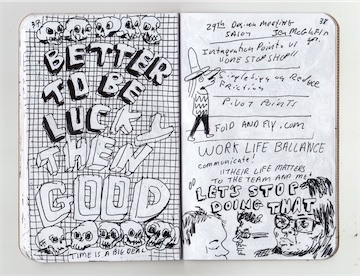 37
BETTER
TO BE
LUCKY
THEN
GOOD
TIME IS A BIG DEAL
38
29th Design Meeting
Jason
Integration Points vs
"ONE STOP SHOP"
Reduce
Friction
Pivot Points
FOLD AND FLY.com
WORK LIFE BALLANCE
communicate!
"THEIR LIFE MATTERS
TO THE TEAM AND ME!
LET'S STOP
DOING THAT